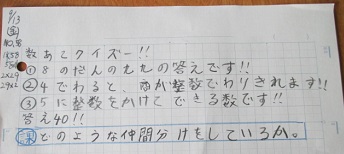 6/13
㊎
数あてクイズー!!
①8のだんの九九の答えです!!
②4でわると、商が整数でわりきれます!!
③5に整数をかけてできる数です!!
答え40!!
課 どのような仲間分けをしているか。
1×58
2×29
29×2